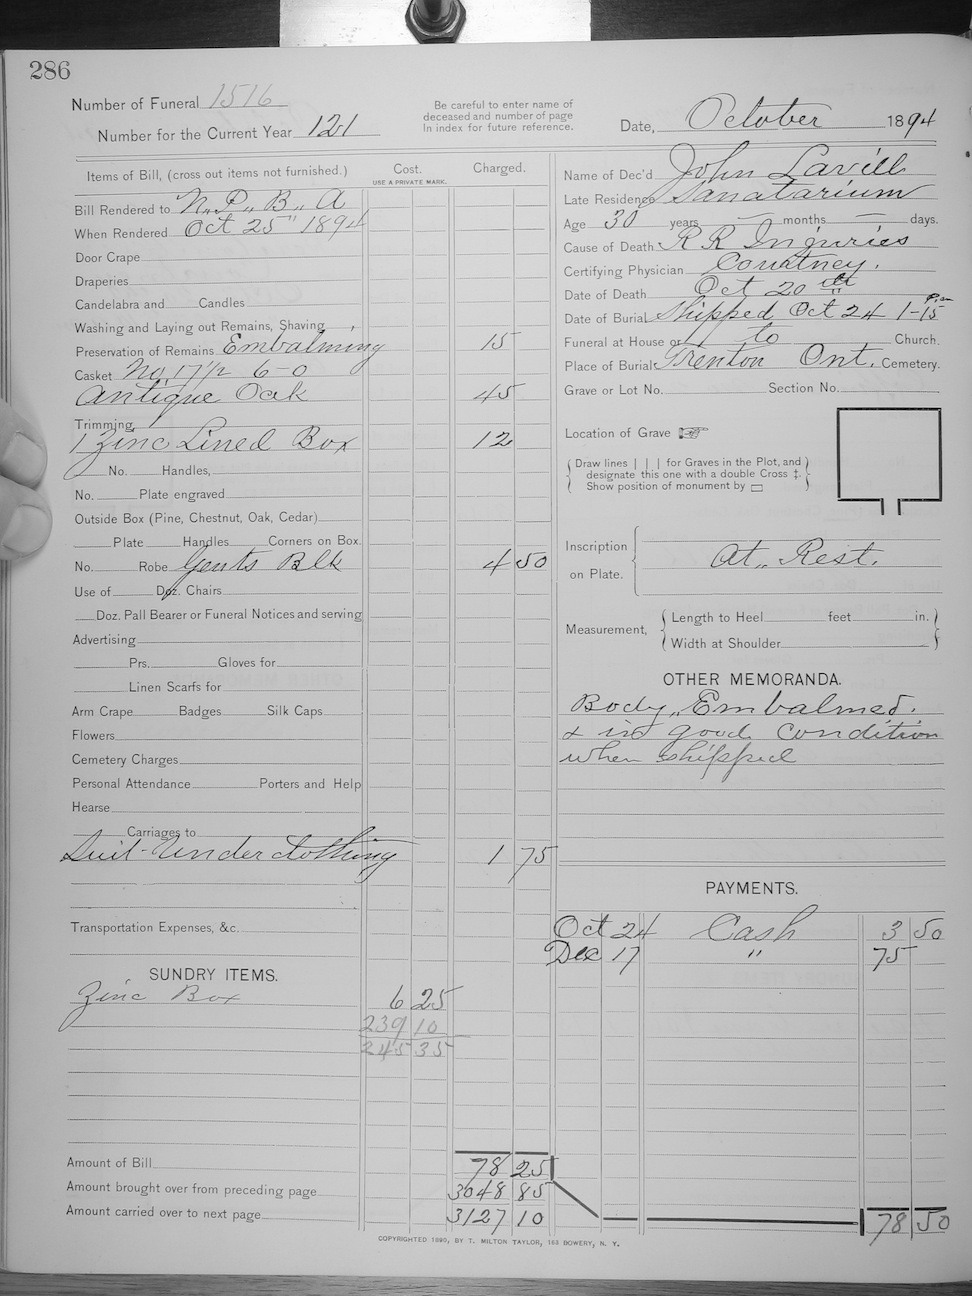 286
Number of Funeral 1516
Number for the Current Year 121
Be careful to enter name of
deceased and number of page
In index for future reference.
Date, October 1894
Items of Bill, (cross out items not furnished.)
Cost.
USE A PRIVATE MARK.
Charged.
Bill Rendered to N.,P.,B.,A
When Rendered Oct 25" 1894
Door Crape
Draperies
Candelabra and Candles
Washing and Laying out Remains, Shaving
Preservation of Remains Embalming 15
Casket No. 17 1/2 6-0
Antique Oak 45
Trimming
1 Zinc Lined Box 12
No. Handles,
No. Plate engraved
Outside Box (Pine, Chestnut, Oak, Cedar)
Plate Handles Corners on Box.
No. Robe Gents Blk 4 50
Use of Doz. Chairs
Doz. Pall Bearer or Funeral Notices and serving
Advertising
Prs. Gloves for
Linen Scarfs for
Arm Crape Badges Silk Caps
Flowers
Cemetery Charges
Personal Attendance Porters and Help
Hearse
Carriages to
Suit-Underclothing 1 75
Transportation Expenses, &c.
SUNDRY ITEMS.
Zinc Box 6 25
239 10
245 35
Amount of Bill 78 25
Amount brought over from preceding page 3048 85
Amount carried over to next page 3127 10
Name of Dec'd John Lavill
Late Residence Sanatarium
Age 30 years — months — days.
Cause of Death R R Injuries
Certifying Physician Courtney.
Date of Death Oct 20 th
Date of Burial Shipped Oct 24 1-15 P.m
Funeral at House or to Church.
Place of Burial Trenton Ont. Cemetery.
Grave or Lot No. Section No.
Location of Grave ☞
Draw lines | | | for Graves in the Plot, and
designate this one with a double Cross ‡.
Show position of monument by ▭
Inscription
on Plate.
At,, Rest.
Measurement,
Length to Heel feet in.
Width at Shoulder
OTHER MEMORANDA.
Body,, Embalmed.
& in good condition
when shipped
PAYMENTS.
Oct 24 Cash 3 50
Dec 17 " 75
78 50
COPYRIGHTED 1890, BY T. MILTON TAYLOR, 163 BOWERY, N. Y.